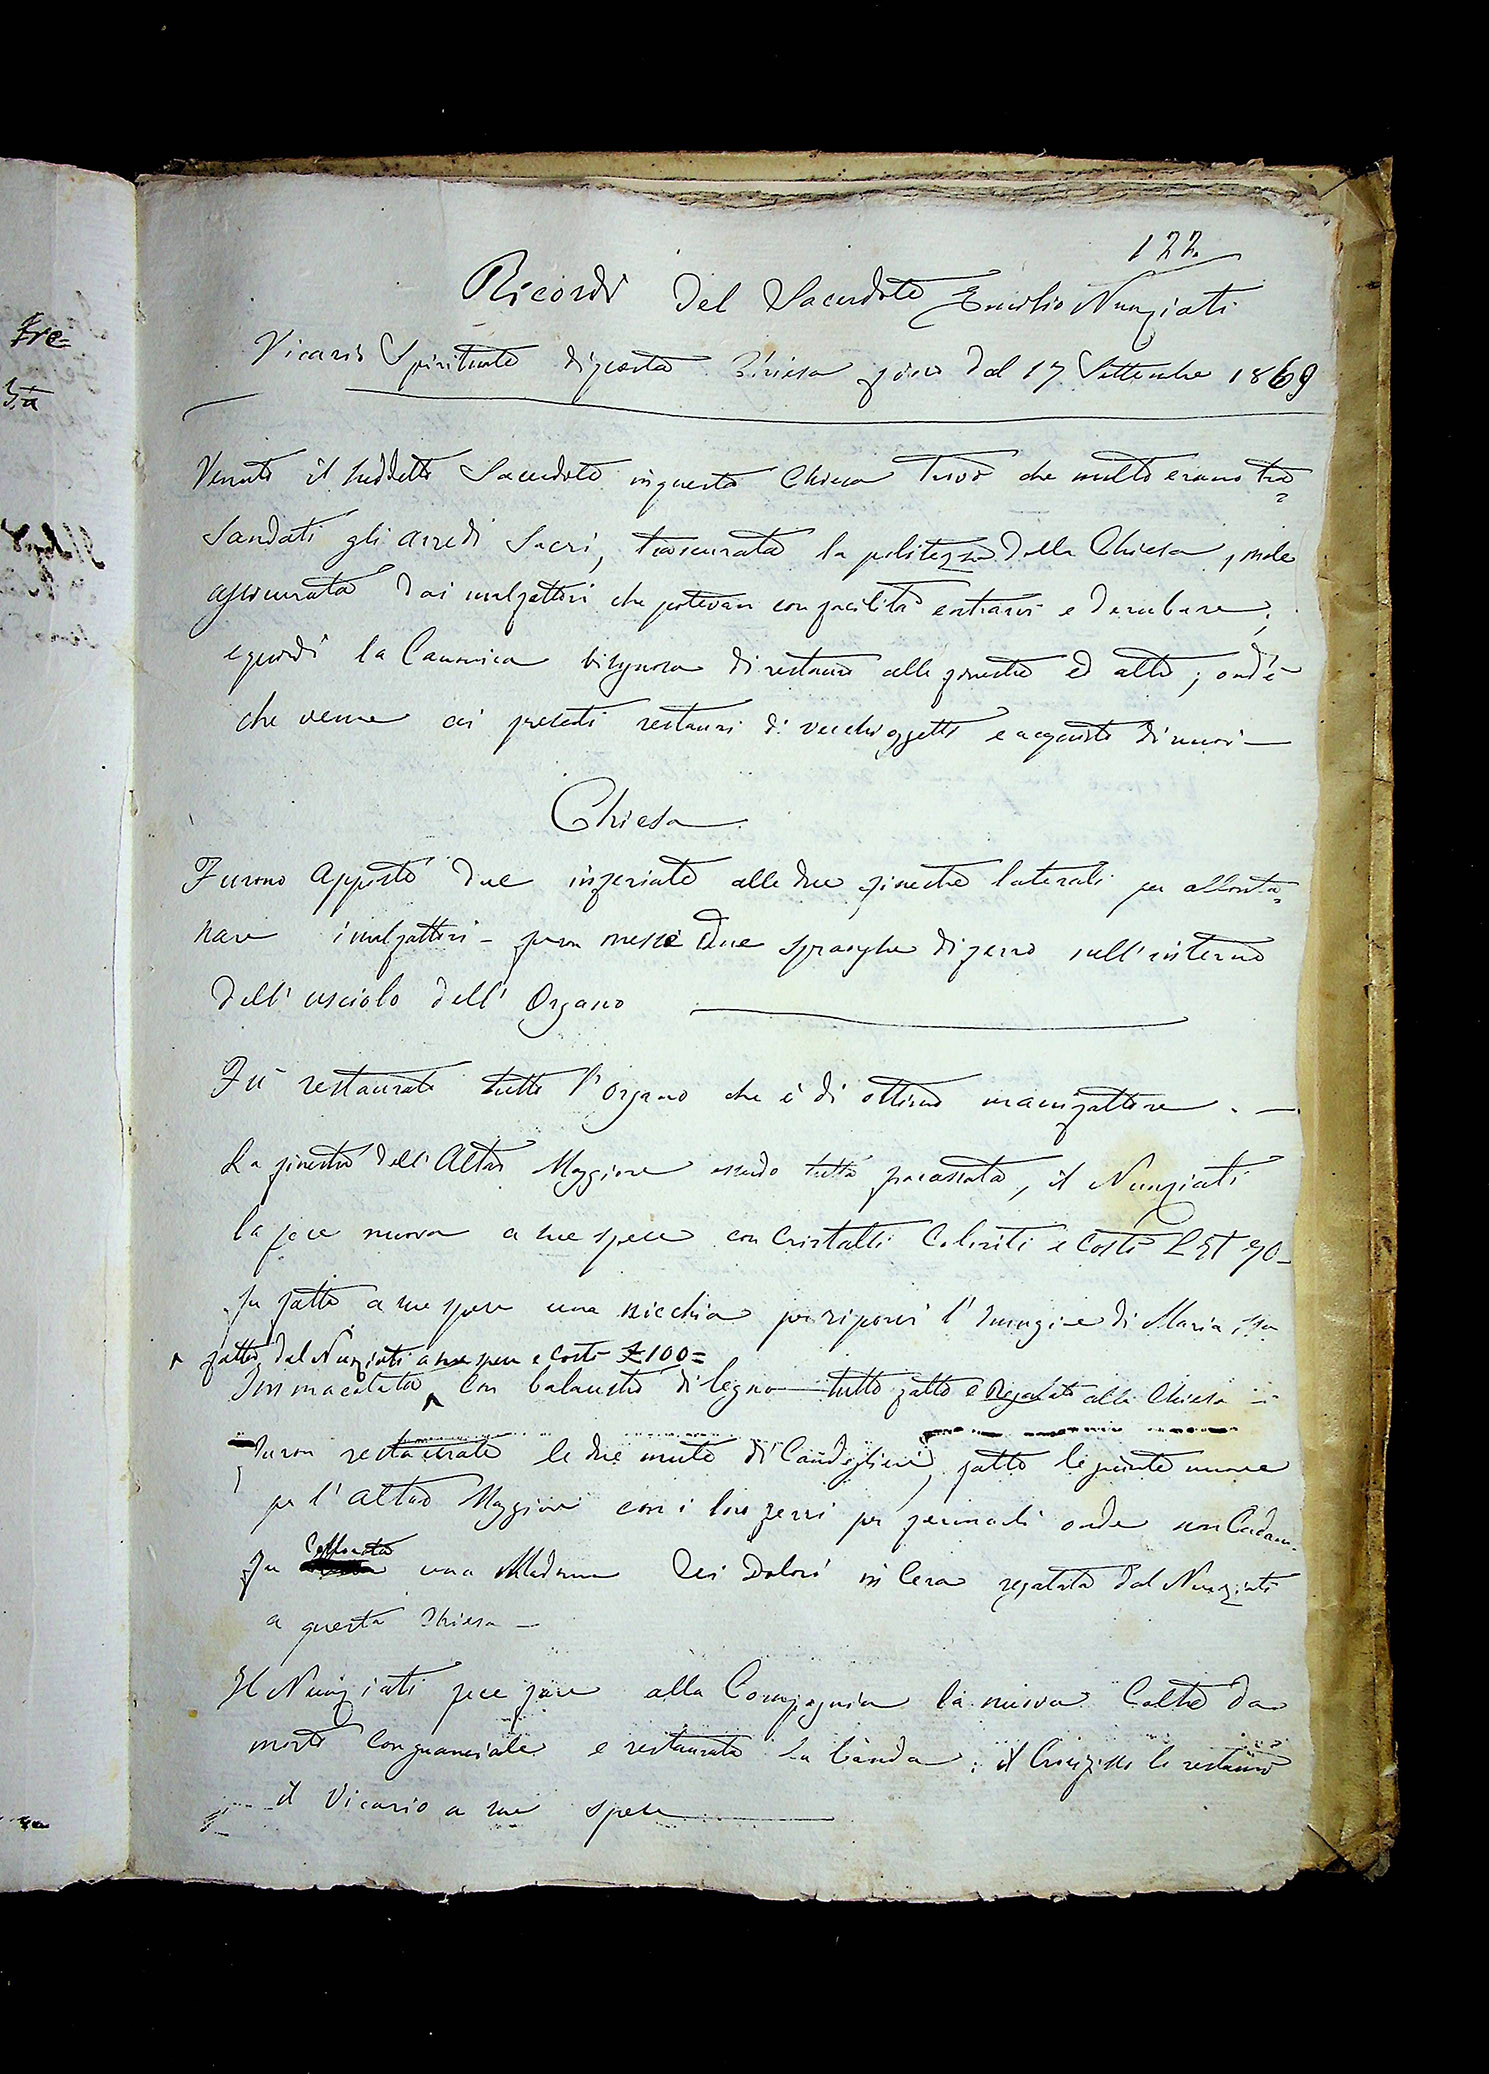 122.
Ricordi del Sacerdote Emilio Nunziati
Vicario Spirituale di questa Chiesa fino dal 17 Settembre 1869
Venuto il suddetto Sacerdote in questa Chiesa trovò che molto erano tra=
sandati gli arredi Sacri, trascurata la pulitezza della Chiesa, male
assicurata dai malfattori che potevan con facilità entrarvi e derubare;
e quindi la Canonica bisognosa di restauro alle finestre ed altro; ond'è
che venne ai presenti restauri di vecchi oggetti e acquisto di nuovi —
Chiesa
Furono apposte due inferiate alle due finestre laterali per allonta=
nare i malfattori – furon messe due spranghe di ferro nell'interno
dell'usciolo dell'Organo
Fù restaurato tutto l'Organo che è di ottima manifattura. —
La finestra dell'Altar Maggiore essendo tutta fracassata, il Nunziati
la fece nuova a sue spese con Cristalli Coloriti e Costò
fu fatto a sue spese una nicchia per riporvi l'Immagine di Maria SSma
^ fatta dal Nunziati a sue spese e Costò £ 100=
Immacolata ^ Con balaustro di legno tutto fatto e Regalato alla Chiesa –
Furon restaurate le due mute di Candeglieri, fatte le piante nuove
per l'Altar Maggiore con i loro ferri per fermarli onde non Cadan.
Fu Collocata una Madonna Dei Dolori in Cera regalata dal Nunziati
a questa Chiesa —
Il Nunziati fece fare alla Compagnia la nuova Coltre da
morto con guanciale e restaurata la banda: il Crocifisso lo restaurò
il Vicario a sue spese